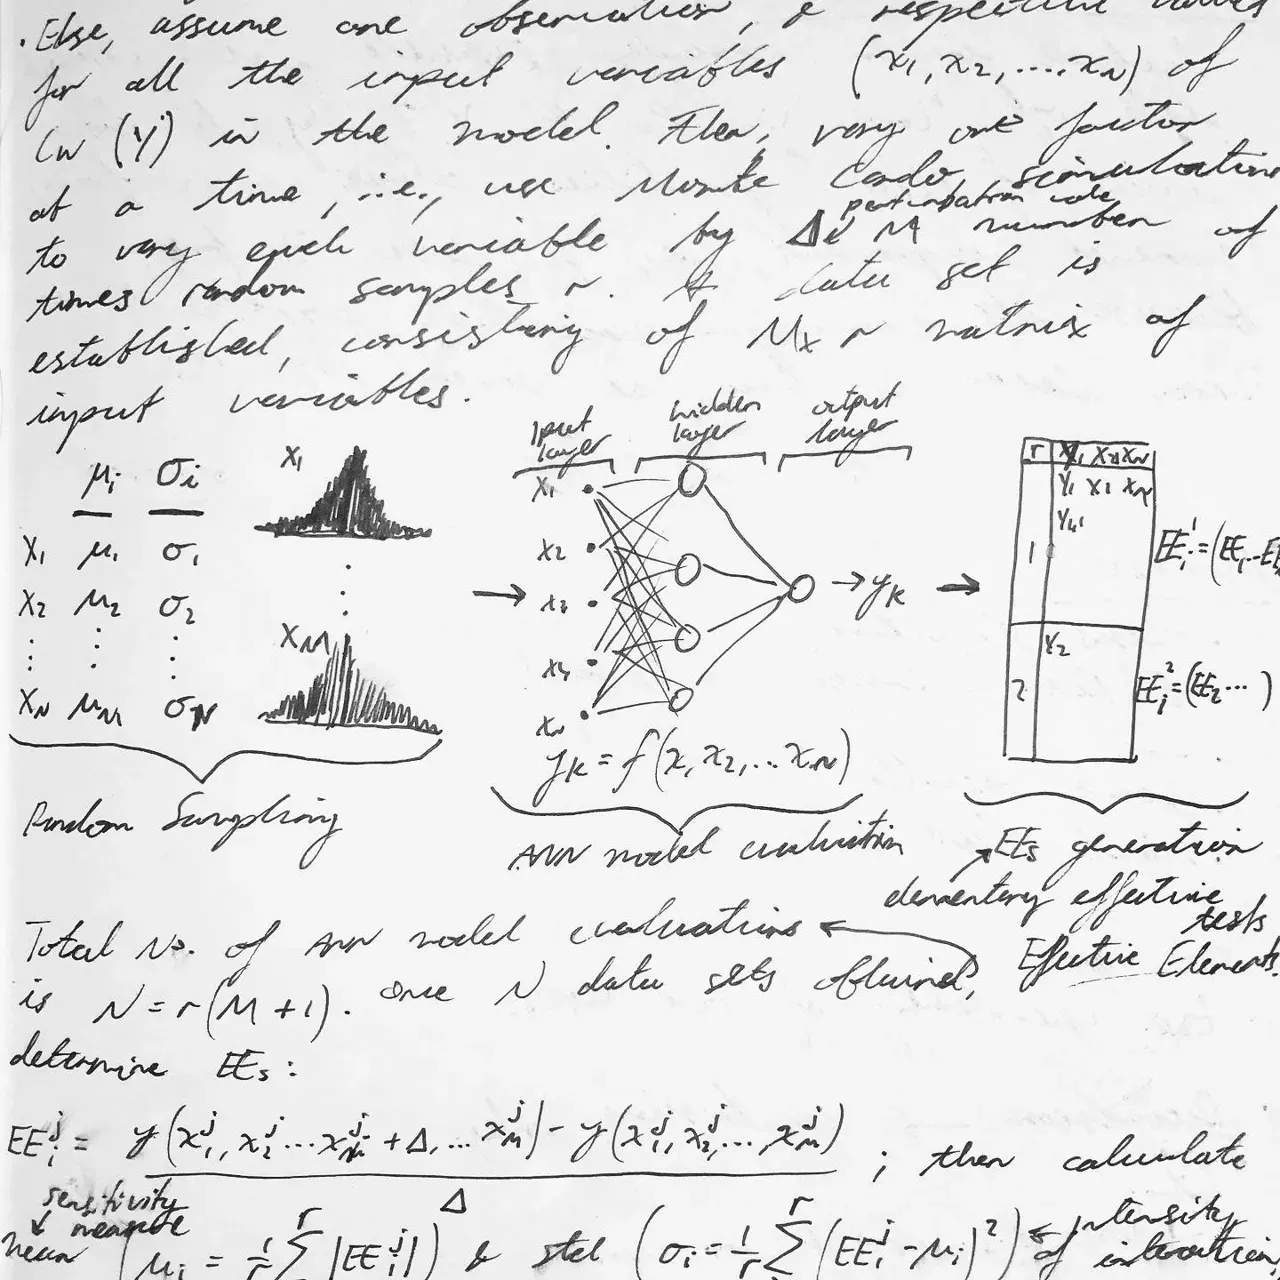 . Else, assume one observation, & respective values
for all the input variables (x1, x2, ....xN) of
Cw (Y^j) in the model. Then, vary one factor
at a time, i.e., use Monte Carlo simulations
perturbation value
to vary each variable by Δi M number of
times random samples r. A data set is
established, consisting of M x r matrix of
input variables.
μi σi
X1 μ1 σ1
X2 μ2 σ2
XN μM σN
X1
XM
Random Sampling
Input layer
hidden layer
output layer
X1
X2
X3
X4
Xn
→ yk
yk = f(x, x2, ... xN)
ANN model evaluation
r X1 X2 XN
Y1 X1 XN
1
Y2
2
EEi^1 = (EE1...EE
EEi^2 = (EE2 ... )
EEs generation
elementary effective
tests
Effective Elements
Total No. of ANN model evaluations
is N = r(M+1). once N data sets obtained,
determine EEs :
EEi^j = y(x1^j, x2^j ... xM^j + Δ, ... xM^j) - y(x1^j, x2^j ..., xM^j) / Δ ; then calculate
sensitivity measure
mean (μi = 1/r Σ^r |EEi^j|) & std (σi = 1/r Σ^r (EEi^j - μi)^2) ← intensity
of interaction,